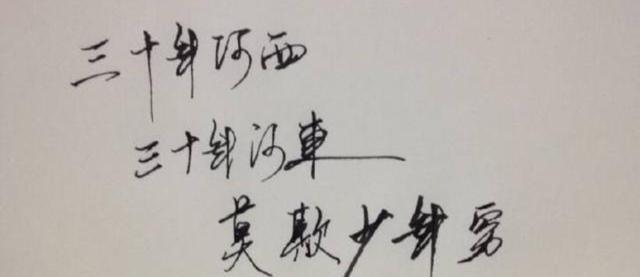 三十年河西
三十年河東
莫欺少年窮